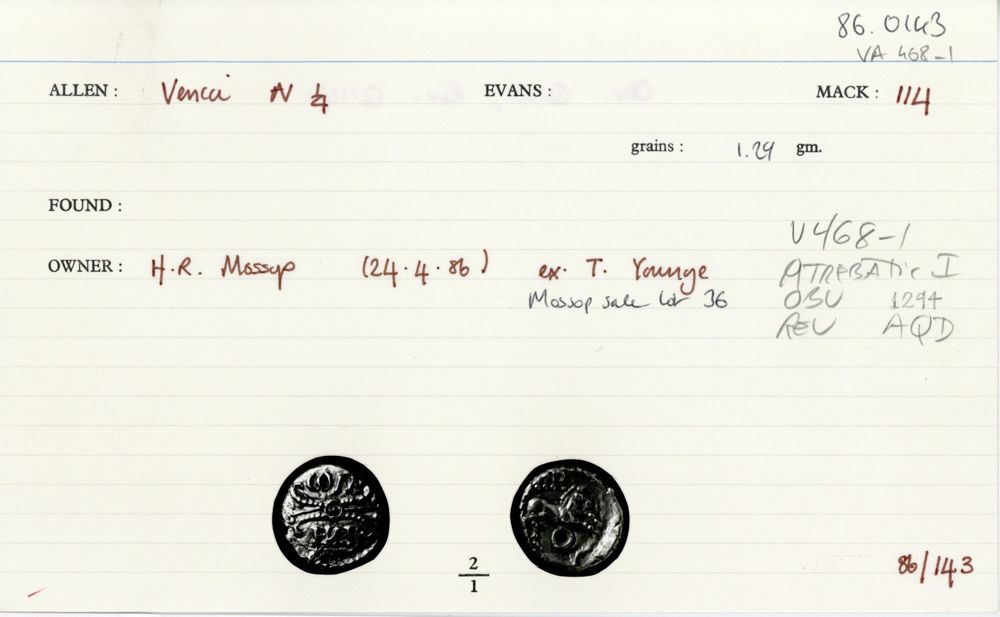 86.0143
VA 468-1
ALLEN : Vericci N ¼ EVANS : MACK : 114
grains : 1.29 gm.
FOUND :
V468-1
OWNER : H.R. Mossop (24.4.86) ex. T. Younge ATREBATIC I
Mossop sale Lot 36 OBV 1294
REV AQD
2
1
86/143